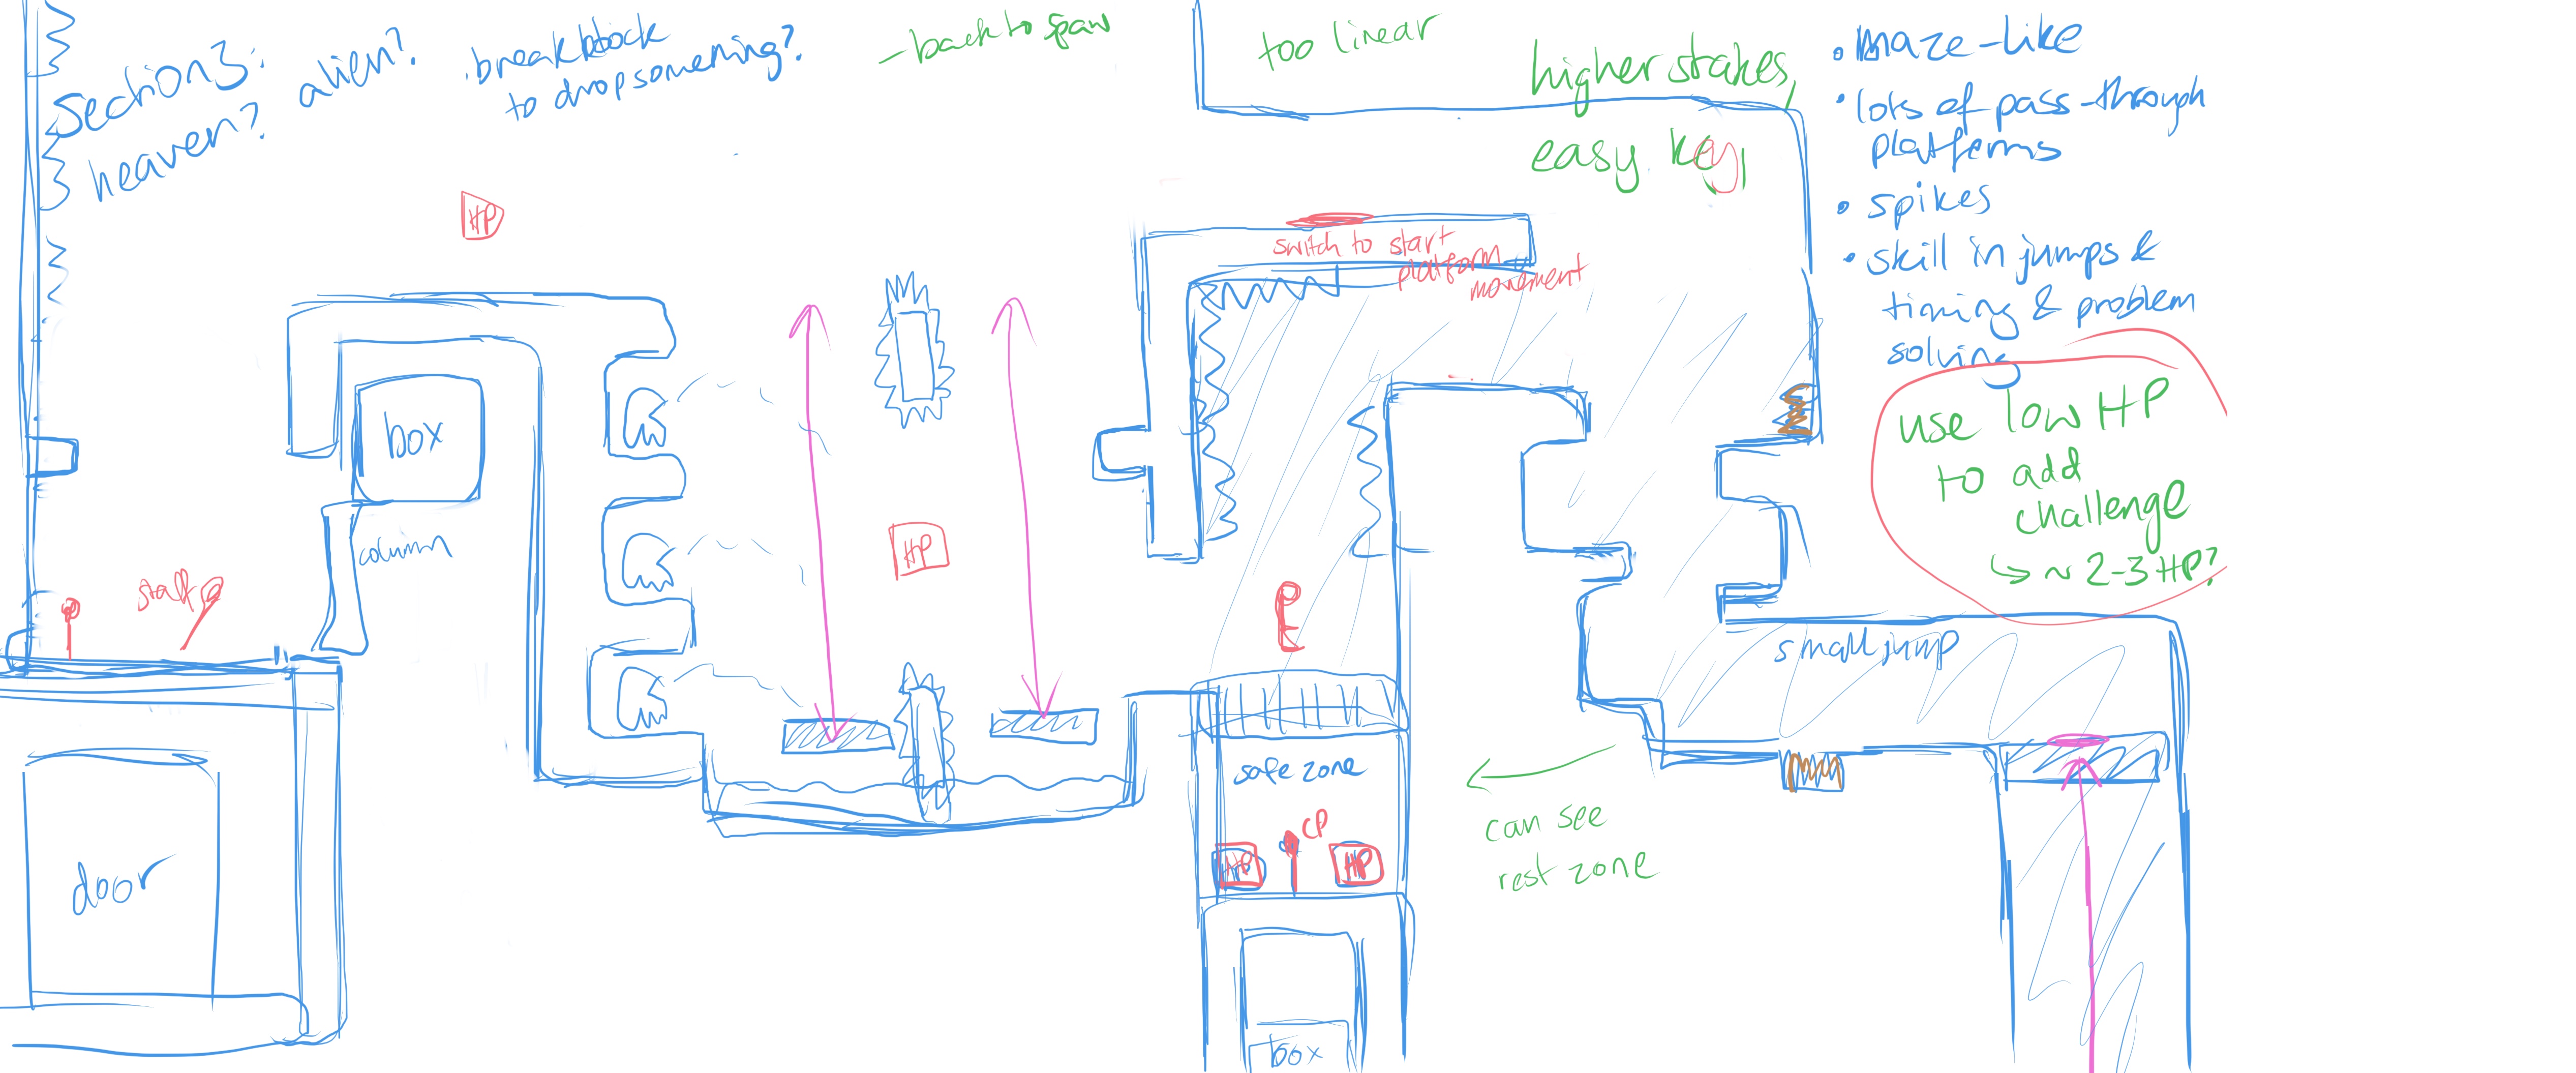 Section 3:
heaven?
alien?
. break block
to drop something?
- back to spawn
too linear
higher stakes,
easy key
• maze-like
• lots of pass-through
platforms
• spikes
• skill in jumps &
timing & problem
solving
use low HP
to add
challenge
↳ ~ 2-3 HP?
HP
switch to start
platform
movement
box
column
staff
HP
small jump
safe zone
CP
HP
HP
can see
rest zone
door
box